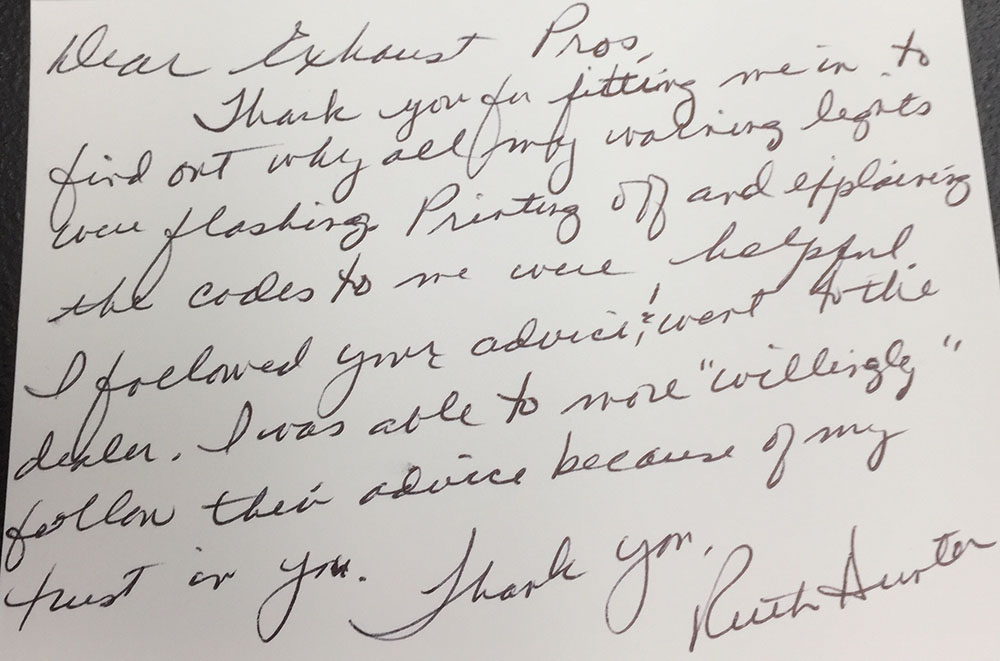 Dear Exhaust Pros,
Thank you for fitting me in to
find out why all my warning lights
were flashing. Printing off and explaining
the codes to me were helpful.
I followed your advice, & went to the
dealer. I was able to more "willingly"
follow their advice because of my
trust in you. Thank you,
Ruth Hunter